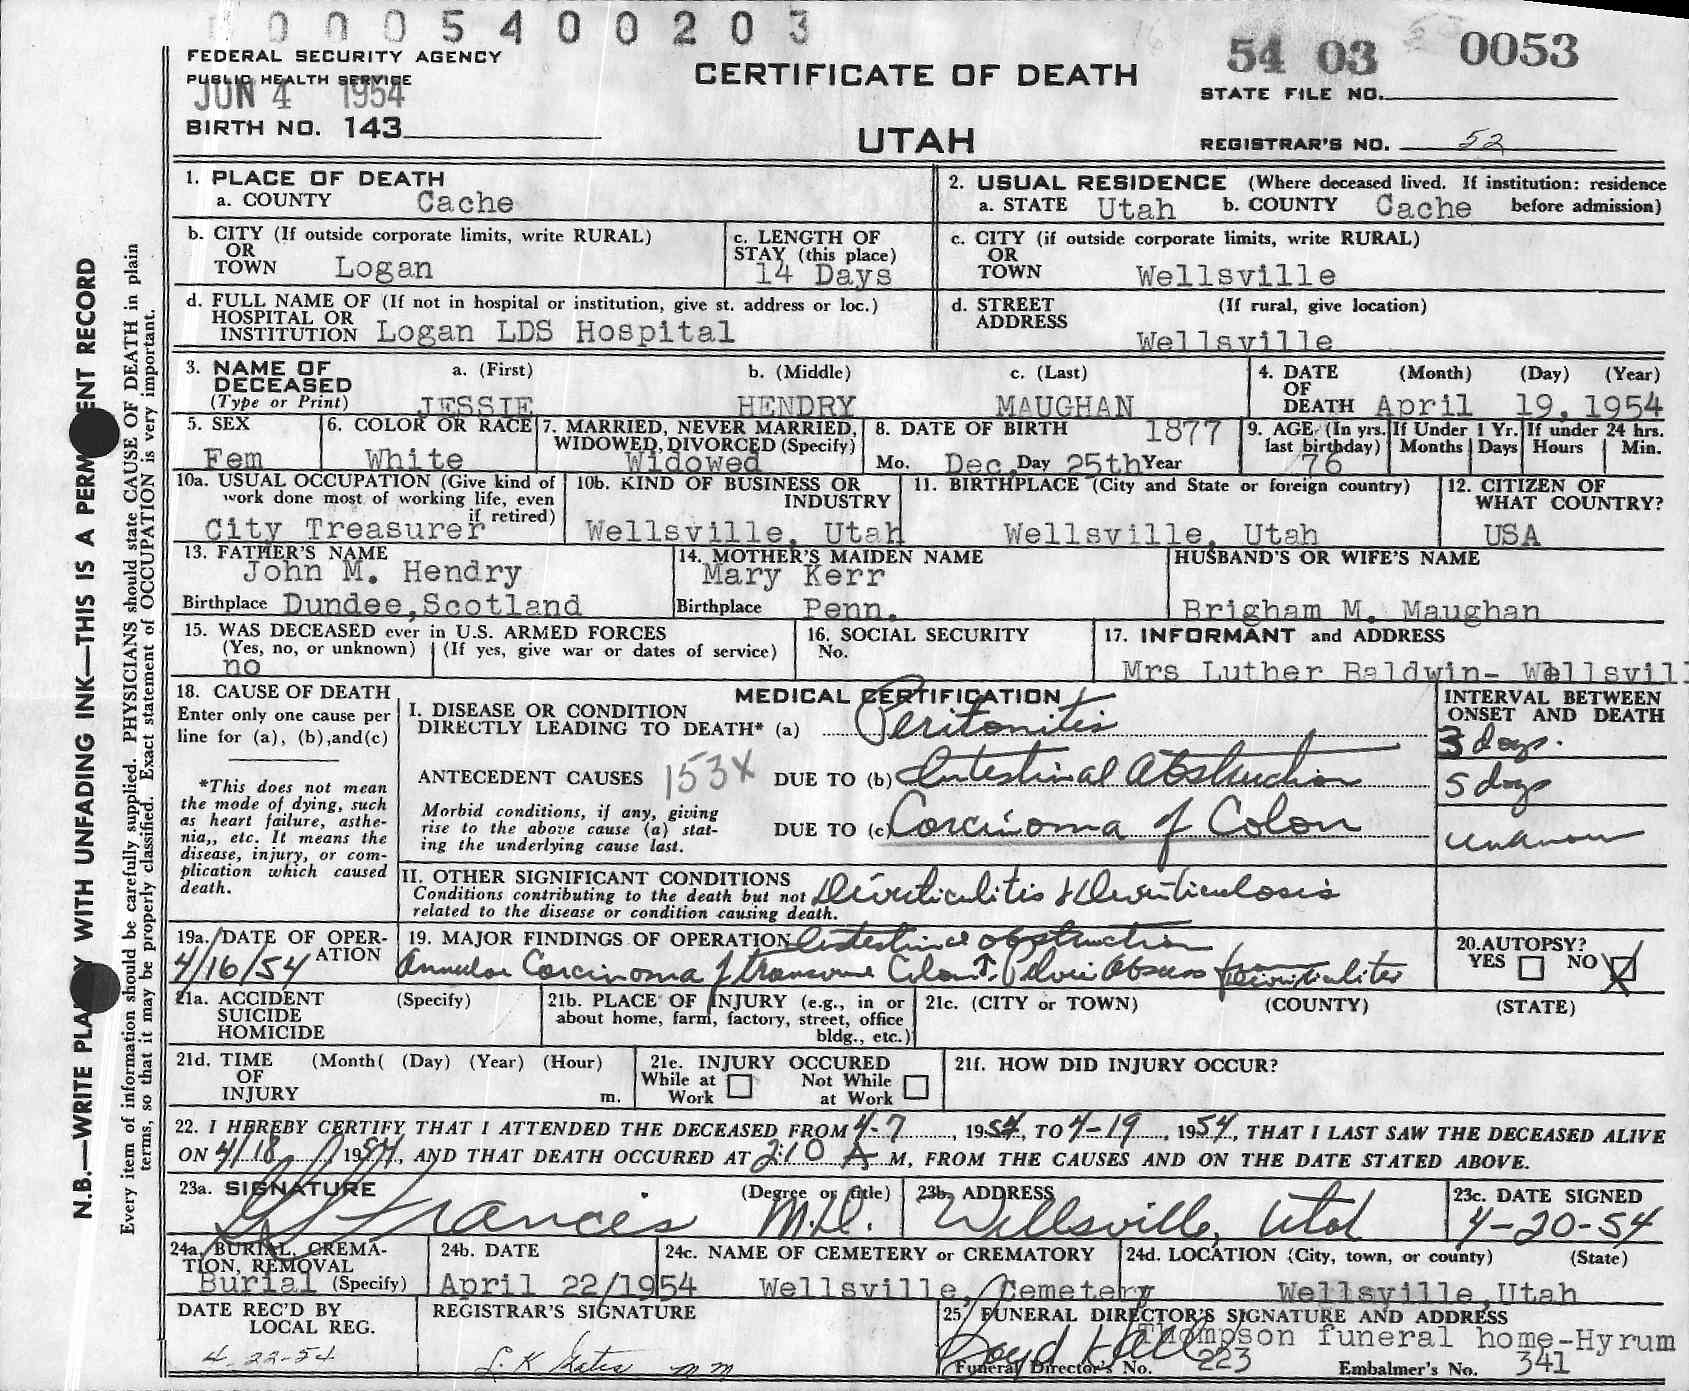 0 0 0 5 4 0 0 2 0 3
FEDERAL SECURITY AGENCY
PUBLIC HEALTH SERVICE
JUN 4 1954
BIRTH NO. 143
CERTIFICATE OF DEATH
UTAH
54 03 0053
STATE FILE NO.
REGISTRAR'S NO. 52
1. PLACE OF DEATH
a. COUNTY Cache
2. USUAL RESIDENCE (Where deceased lived. If institution: residence before admission)
a. STATE Utah b. COUNTY Cache
b. CITY (If outside corporate limits, write RURAL)
OR
TOWN Logan
c. LENGTH OF
STAY (this place)
14 Days
c. CITY (if outside corporate limits, write RURAL)
OR
TOWN Wellsville
d. FULL NAME OF (If not in hospital or institution, give st. address or loc.)
HOSPITAL OR
INSTITUTION Logan LDS Hospital
d. STREET (If rural, give location)
ADDRESS
Wellsville
3. NAME OF
DECEASED
(Type or Print)
a. (First) b. (Middle) c. (Last)
JESSIE HENDRY MAUGHAN
4. DATE (Month) (Day) (Year)
OF
DEATH April 19, 1954
5. SEX
Fem
6. COLOR OR RACE
White
7. MARRIED, NEVER MARRIED,
WIDOWED, DIVORCED (Specify)
Widowed
8. DATE OF BIRTH 1877
Mo. Dec. Day 25th Year
9. AGE (In yrs.
last birthday)
76
If Under 1 Yr.
Months Days
If under 24 hrs.
Hours Min.
10a. USUAL OCCUPATION (Give kind of
work done most of working life, even
if retired)
City Treasurer
10b. KIND OF BUSINESS OR
INDUSTRY
Wellsville, Utah
11. BIRTHPLACE (City and State or foreign country)
Wellsville, Utah
12. CITIZEN OF
WHAT COUNTRY?
USA
13. FATHER'S NAME
John M. Hendry
Birthplace Dundee, Scotland
14. MOTHER'S MAIDEN NAME
Mary Kerr
Birthplace Penn.
HUSBAND'S OR WIFE'S NAME
Brigham M. Maughan
15. WAS DECEASED ever in U.S. ARMED FORCES
(Yes, no, or unknown) (If yes, give war or dates of service)
no
16. SOCIAL SECURITY
No.
17. INFORMANT and ADDRESS
Mrs Luther Baldwin- Wellsvill
18. CAUSE OF DEATH
Enter only one cause per
line for (a), (b),and(c)
*This does not mean
the mode of dying, such
as heart failure, asthe-
nia,, etc. It means the
disease, injury, or com-
plication which caused
death.
MEDICAL CERTIFICATION
I. DISEASE OR CONDITION
DIRECTLY LEADING TO DEATH* (a) Peritonitis
ANTECEDENT CAUSES 153X DUE TO (b) Intestinal Obstruction
Morbid conditions, if any, giving
rise to the above cause (a) stat-
ing the underlying cause last.
DUE TO (c) Carcinoma of Colon
II. OTHER SIGNIFICANT CONDITIONS
Conditions contributing to the death but not
related to the disease or condition causing death.
Diverticulitis & Diverticulosis
INTERVAL BETWEEN
ONSET AND DEATH
3 days.
5 days
unknown
19a. DATE OF OPER-
ATION
4/16/54
19. MAJOR FINDINGS OF OPERATION Intestinal obstruction
Annular Carcinoma of transverse Colon Pelvic Abscess from Diverticulitis
20. AUTOPSY?
YES NO X
21a. ACCIDENT (Specify)
SUICIDE
HOMICIDE
21b. PLACE OF INJURY (e.g., in or
about home, farm, factory, street, office
bldg., etc.)
21c. (CITY or TOWN) (COUNTY) (STATE)
21d. TIME (Month( (Day) (Year) (Hour)
OF
INJURY m.
21e. INJURY OCCURED
While at Work Not While at Work
21f. HOW DID INJURY OCCUR?
22. I HEREBY CERTIFY THAT I ATTENDED THE DECEASED FROM 4-7, 1954, TO 4-19, 1954, THAT I LAST SAW THE DECEASED ALIVE
ON 4/18 1954, AND THAT DEATH OCCURED AT 2:10 A M, FROM THE CAUSES AND ON THE DATE STATED ABOVE.
23a. SIGNATURE (Degree or title)
Francis M.D.
23b. ADDRESS
Wellsville, Utah
23c. DATE SIGNED
4-20-54
24a. BURIAL, CREMA-
TION, REMOVAL
Burial (Specify)
24b. DATE
April 22/1954
24c. NAME OF CEMETERY or CREMATORY
Wellsville, Cemetery
24d. LOCATION (City, town, or county) (State)
Wellsville, Utah
DATE REC'D BY
LOCAL REG.
4-22-54
REGISTRAR'S SIGNATURE
25 FUNERAL DIRECTOR'S SIGNATURE AND ADDRESS
Boyd Hall Thompson funeral home-Hyrum
Funeral Director's No. 223 Embalmer's No. 341
N.B.—WRITE PLA WITH UNFADING INK—THIS IS A PERM ENT RECORD
Every item of information should be carefully supplied. PHYSICIANS should state CAUSE OF DEATH in plain
terms, so that it may be properly classified. Exact statement of OCCUPATION is very important.